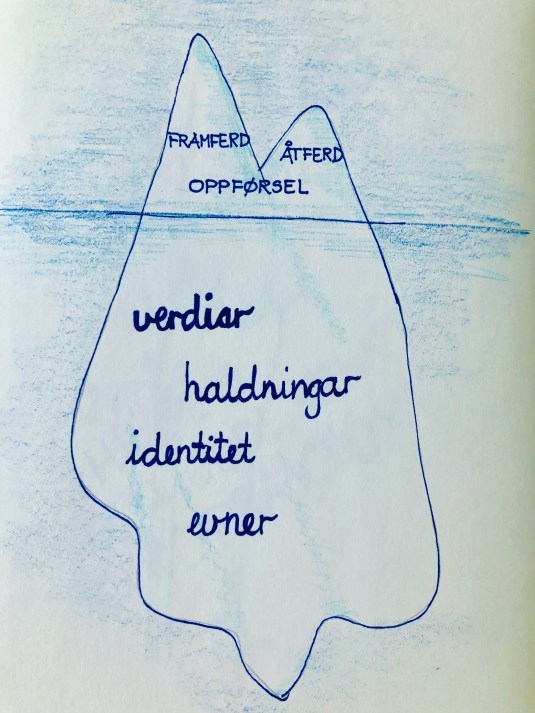 FRAMFERD
ÅTFERD
OPPFØRSEL
verdiar
haldningar
identitet
evner